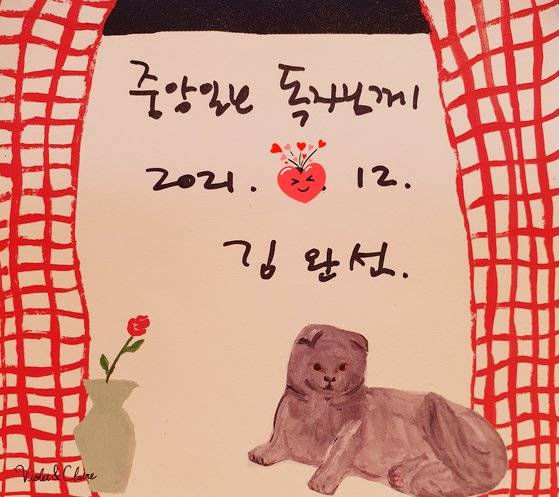 중앙일보 독자님께
2021. . 12.
김완선.
Violet & Claire